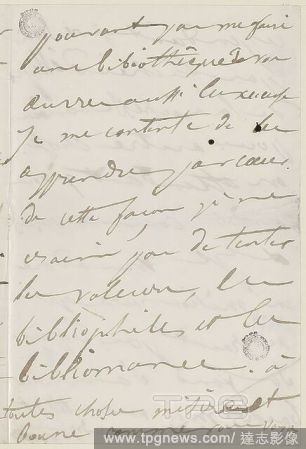 pouvant pas me faire
une bibliothèque d'un
aussi luxueuse
je me contente de les
apprendre par cœur.
de cette façon je ne
crains pas de tenter
les voleurs, les
bibliophiles et les
bibliomanes. à
toutes choses misère est
bonne comme
TPG
www.tpgnews.com/ 達志影像